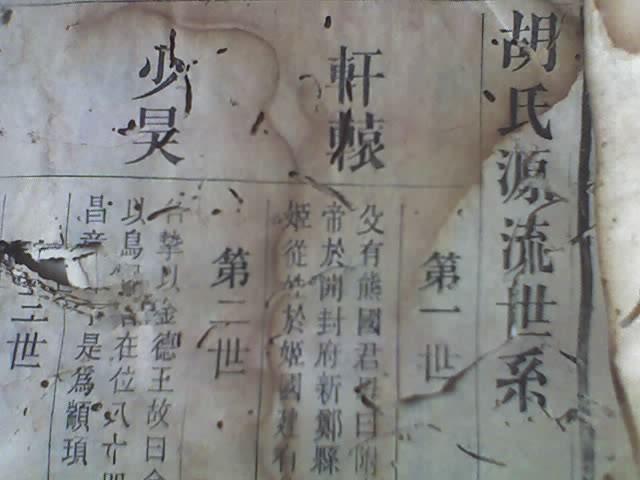 胡氏源流世系
第一世
軒轅
父有熊國君
曰附
帝於開封府新鄭縣
姬從
於姬國建有
第二世
少昊
名摯以金德王故曰金
以鳥
在位八十
昌意
是為顓頊
三世